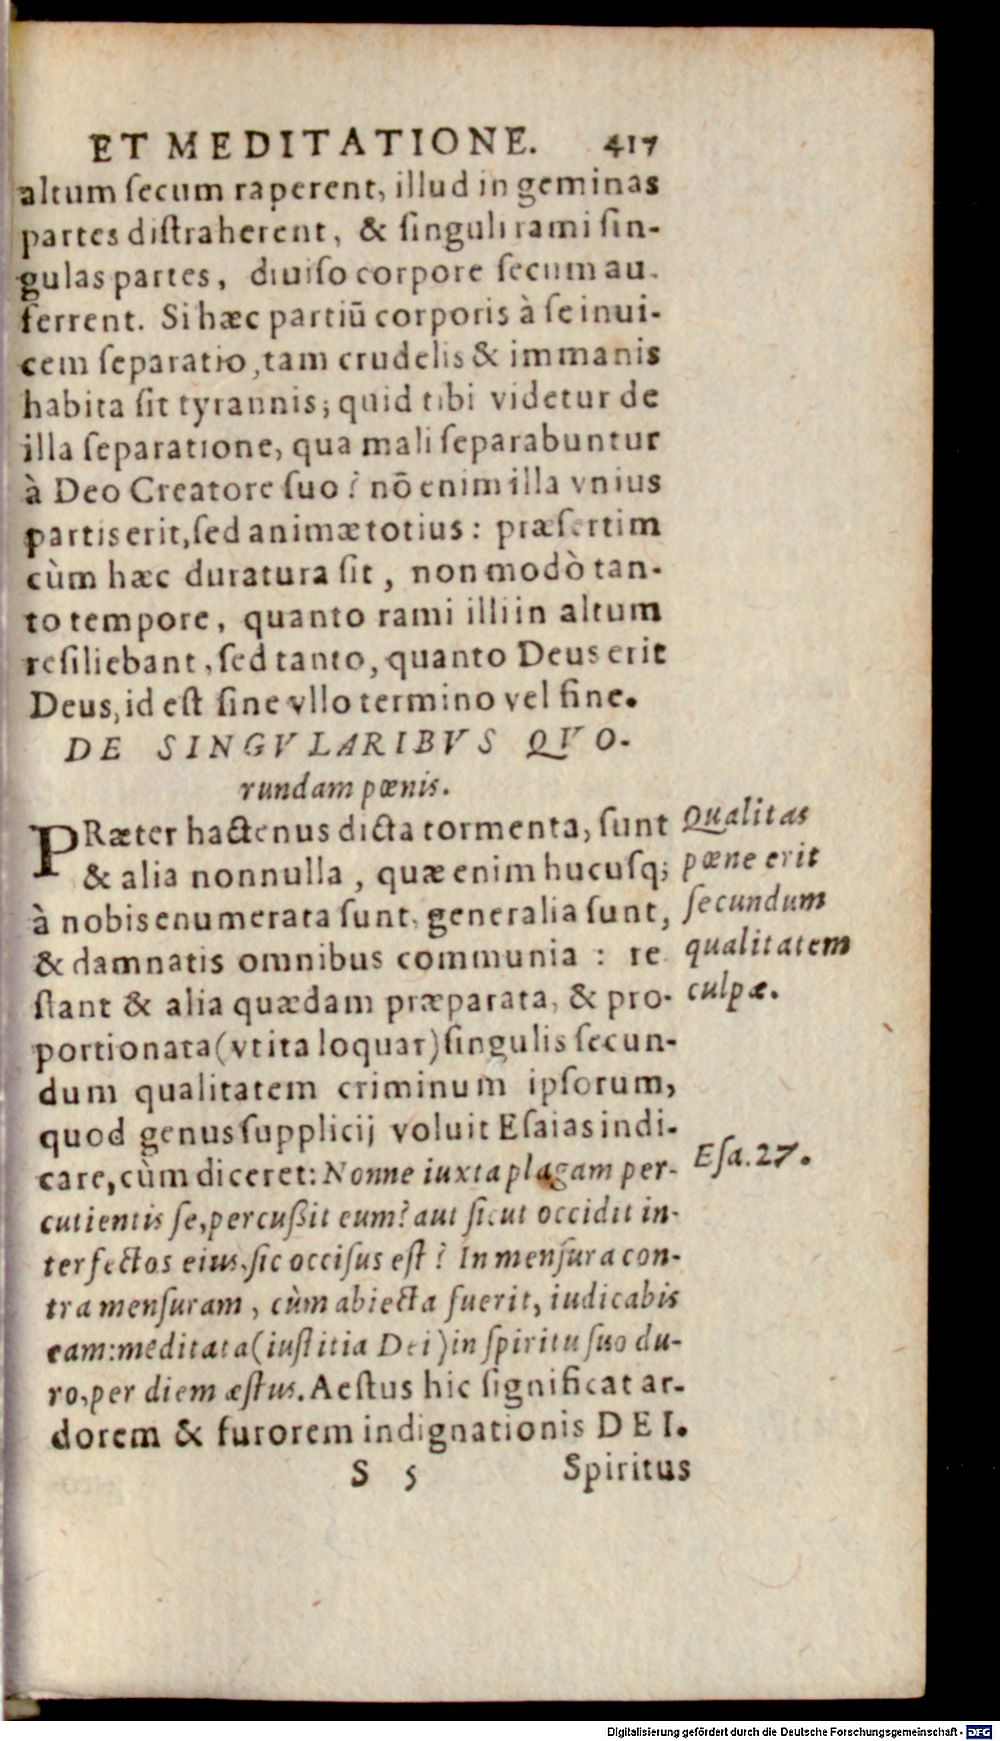 ET MEDITATIONE. 417
altum ſecum raperent, illud in geminas
partes diſtraherent, & ſinguli rami ſin-
gulas partes, diuiſo corpore ſecum au-
ferrent. Si hæc partiū corporis à ſe inui-
cem ſeparatio, tam crudelis & immanis
habita ſit tyrannis; quid tibi videtur de
illa ſeparatione, qua mali ſeparabuntur
à Deo Creatore ſuo? nō enim illa vnius
partis erit, ſed animæ totius: præſertim
cùm hæc duratura ſit, non modò tan-
to tempore, quanto rami illi in altum
reſiliebant, ſed tanto, quanto Deus erit
Deus, id eſt ſine vllo termino vel fine.
DE SINGVLARIBVS QVO-
rundam pœnis.
PRæter hactenus dicta tormenta, ſunt
& alia nonnulla, quæ enim hucuſq;
à nobis enumerata ſunt, generalia ſunt,
& damnatis omnibus communia: re
ſtant & alia quædam præparata, & pro-
portionata (vt ita loquar) ſingulis ſecun-
dum qualitatem criminum ipſorum,
quod genus ſupplicij voluit Eſaias indi-
care, cùm diceret: Nonne iuxta plagam per-
cutientis ſe, percuſſit eum? aut ſicut occidit in-
terfectos eius, ſic occiſus eſt? In menſura con-
tra menſuram, cùm abiecta fuerit, iudicabis
eam: meditata (iuſtitia Dei) in ſpiritu ſuo du-
ro, per diem æſtus. Aeſtus hic ſignificat ar-
dorem & furorem indignationis DEI.
S 5 Spiritus
Qualitas
pœne erit
ſecundum
qualitatem
culpæ.
Eſa. 27.
Digitalisierung gefördert durch die Deutsche Forschungsgemeinschaft - DFG